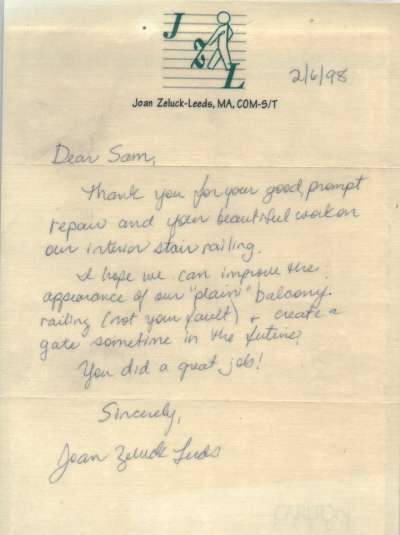 J
Z
L
Joan Zeluck-Leeds, MA, COM-S/T
2/6/98
Dear Sam,
Thank you for your good, prompt
repair and your beautiful work on
our interior stair railing.
I hope we can improve the
appearance of our "plain" balcony
railing (not your fault) + create a
gate sometime in the future.
You did a great job!
Sincerely,
Joan Zeluck Leeds